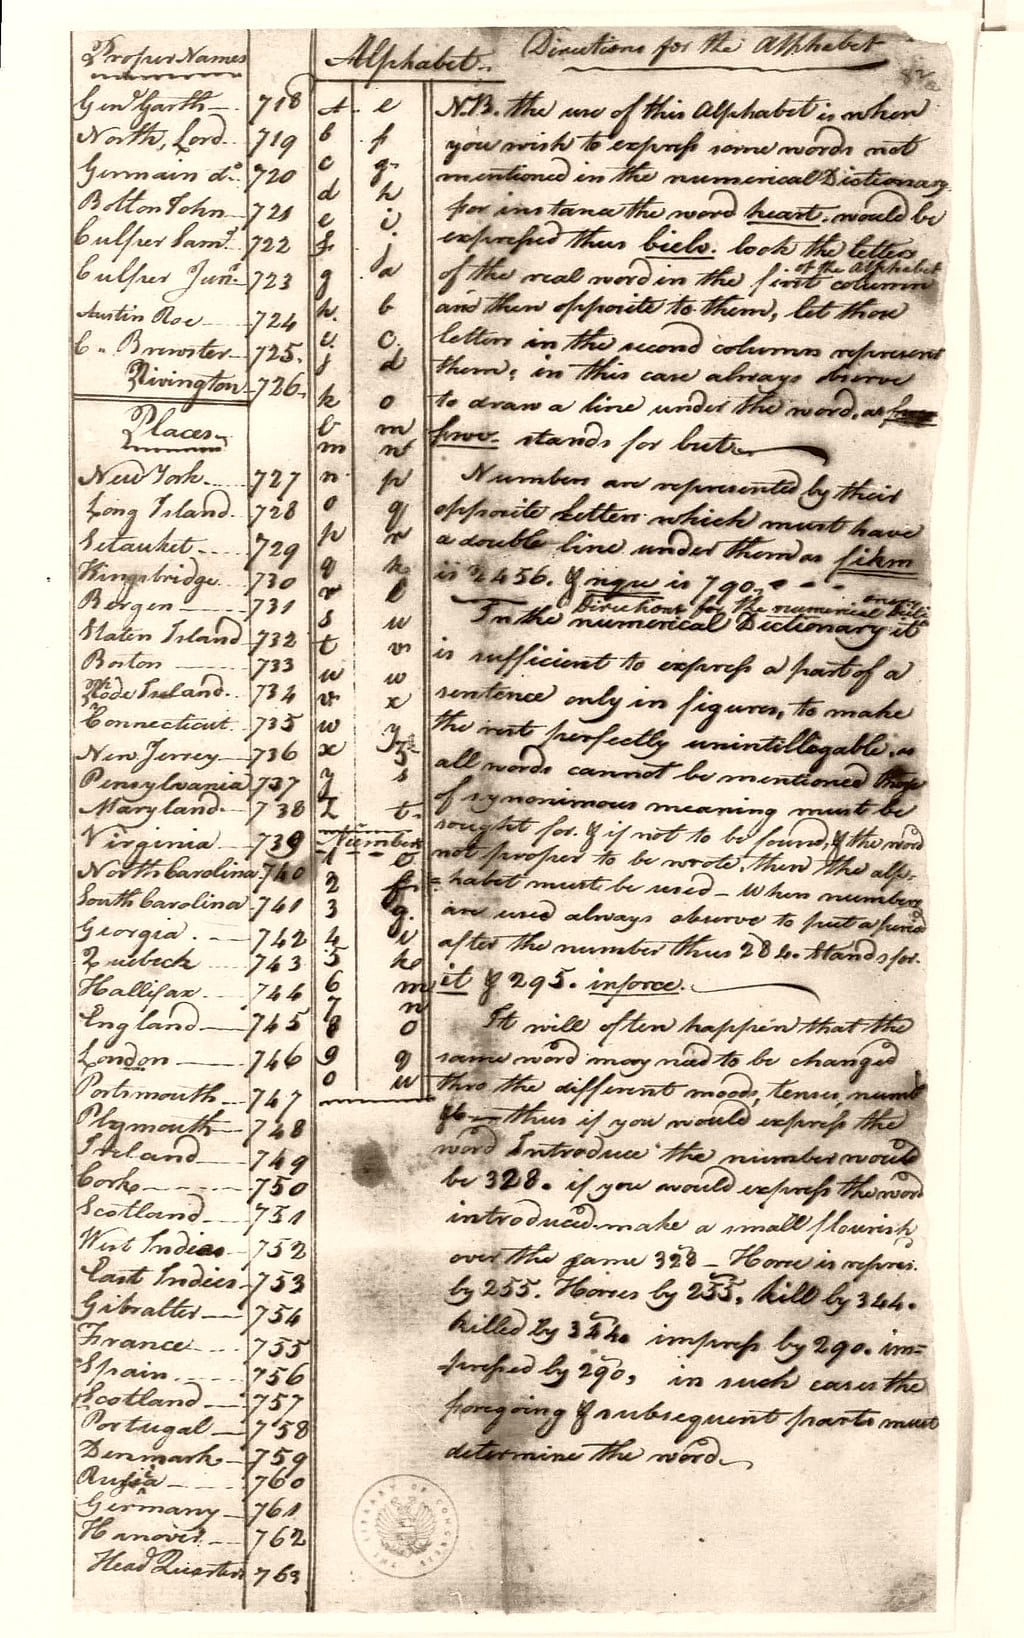 Proper Names
Genl Garth 718
North, Lord 719
Germain do. 720
Bolton John 721
Culper Saml. 722
Culper Junr. 723
Austin Roe 724
C. Brewster 725.
Rivington 726.
Places
New York 727
Long Island 728
Setauket 729
Kingsbridge 730
Bergen 731
Staten Island 732
Boston 733
Rode Island 734
Connecticut 735
New Jersey 736
Pensylvania 737
Maryland 738
Virginia 739
North Carolina 740
South Carolina 741
Georgia 742
Quebeck 743
Hallifax 744
England 745
London 746
Portsmouth 747
Plymouth 748
Ireland 749
Cork 750
Scotland 751
West Indies 752
East Indies 753
Gibralter 754
France 755
Spain 756
Scotland 757
Portugal 758
Denmark 759
Russia 760
Germany 761
Hanover 762
Head Quarters 763
Alphabet
A e
b f
c g
d h
e i
f j
g a
h b
i c
j d
k o
l m
m n
n p
o q
p r
q k
r l
s u
t v
u w
v x
w y
x z
y s
z t
Numbers
1 e
2 f
3 g
4 i
5 k
6 m
7 n
8 o
9 q
0 u
Directions for the Alphabet
N.B. the use of this Alphabet is when
you wish to express some words not
mentioned in the numerical Dictionary
for instance the word heart. would be
expressed thus biels. look the letters
of the real word in the first column
of the Alphabet
and then opposite to them, let those
letters in the second columns represent
them; in this case always observe
to draw a line under the word. as
fwv. stands for but
Numbers are represented by their
opposite letters which must have
a double line under them as fikm
is 2456. & nqu is 790.
Directions for the numerical Dictionary
In the numerical Dictionary it
is sufficient to express a part of a
sentence only in figures, to make
the rest perfectly unintellegable. as
all words cannot be mentioned those
of synonimous meaning must be
sought for. & if not to be found, & the word
not proper to be wrote, then the alp-
habet must be used — When numbers
are used always observe to put a period
after the number thus 284. stands for
it & 295. inforce.
It will often happen that the
same word may need to be changed
thro the different moods, tenses, numb
&c — thus if you would express the
word Introduce the number would
be 328. if you would express the word
introduced make a small flourish
over the same 328 — Horse is repres.
by 255. Horses by 255, kill by 344.
killed by 344. impress by 290. im=
pressed by 290, in such cases the
foregoing & subsequent parts must
determine the word
THE LIBRARY OF CONGRESS